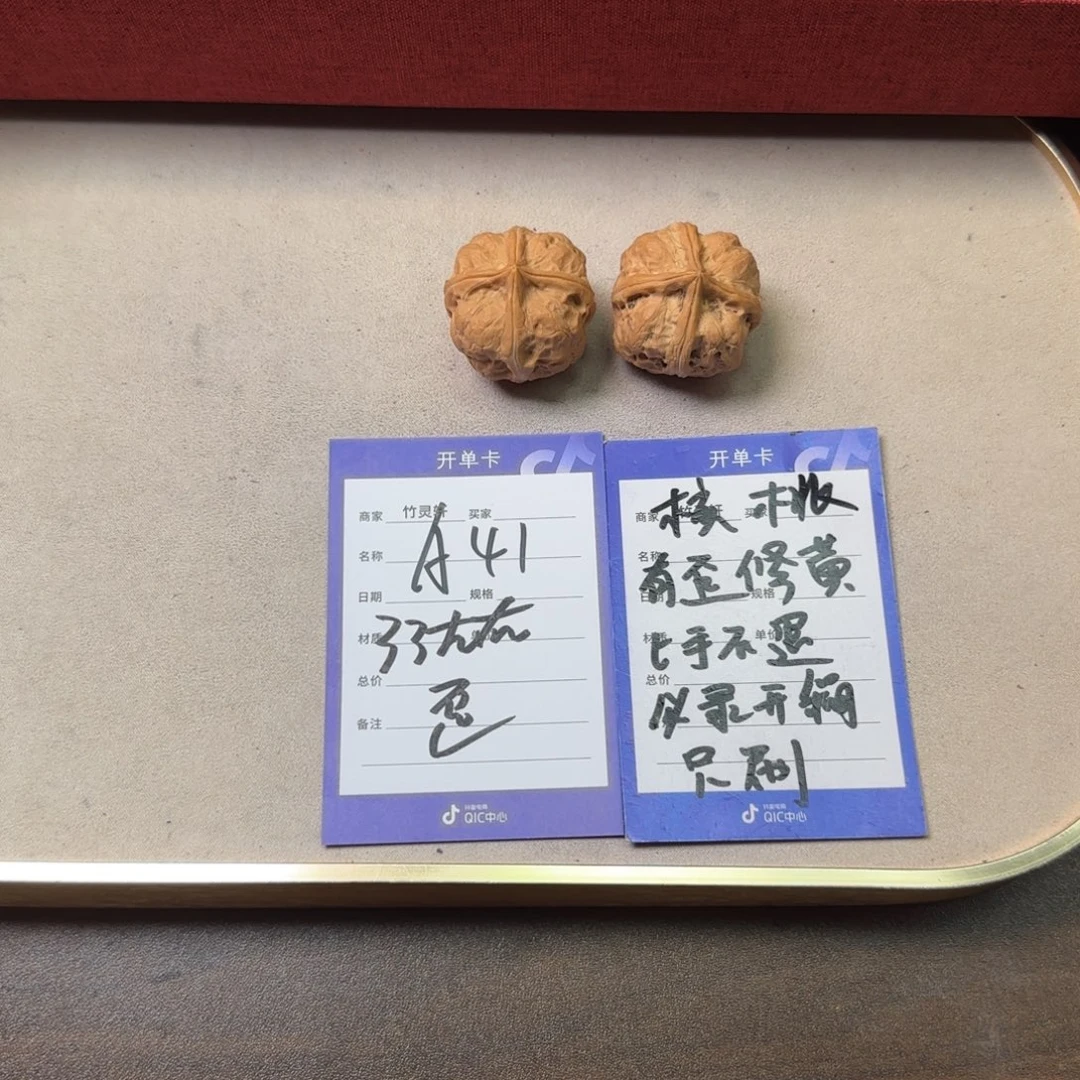 开单卡
商家 竹灵轩 买家
名称 A41
日期 规格
材质 33左右
总价
备注
抖音电商
QIC中心
开单卡
商家 核桃 买家
名称 有歪修黄
规格
上手不退 单价
总价
必录开绸
只刷
抖音电商
QIC中心